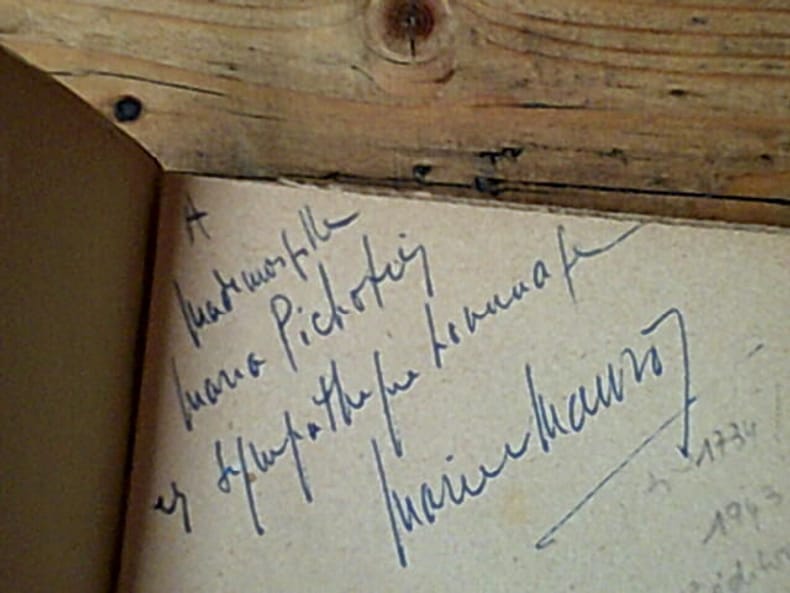 A
Mademoiselle
Maria
en sympathique hommage
Marie Mauron
1734
1943